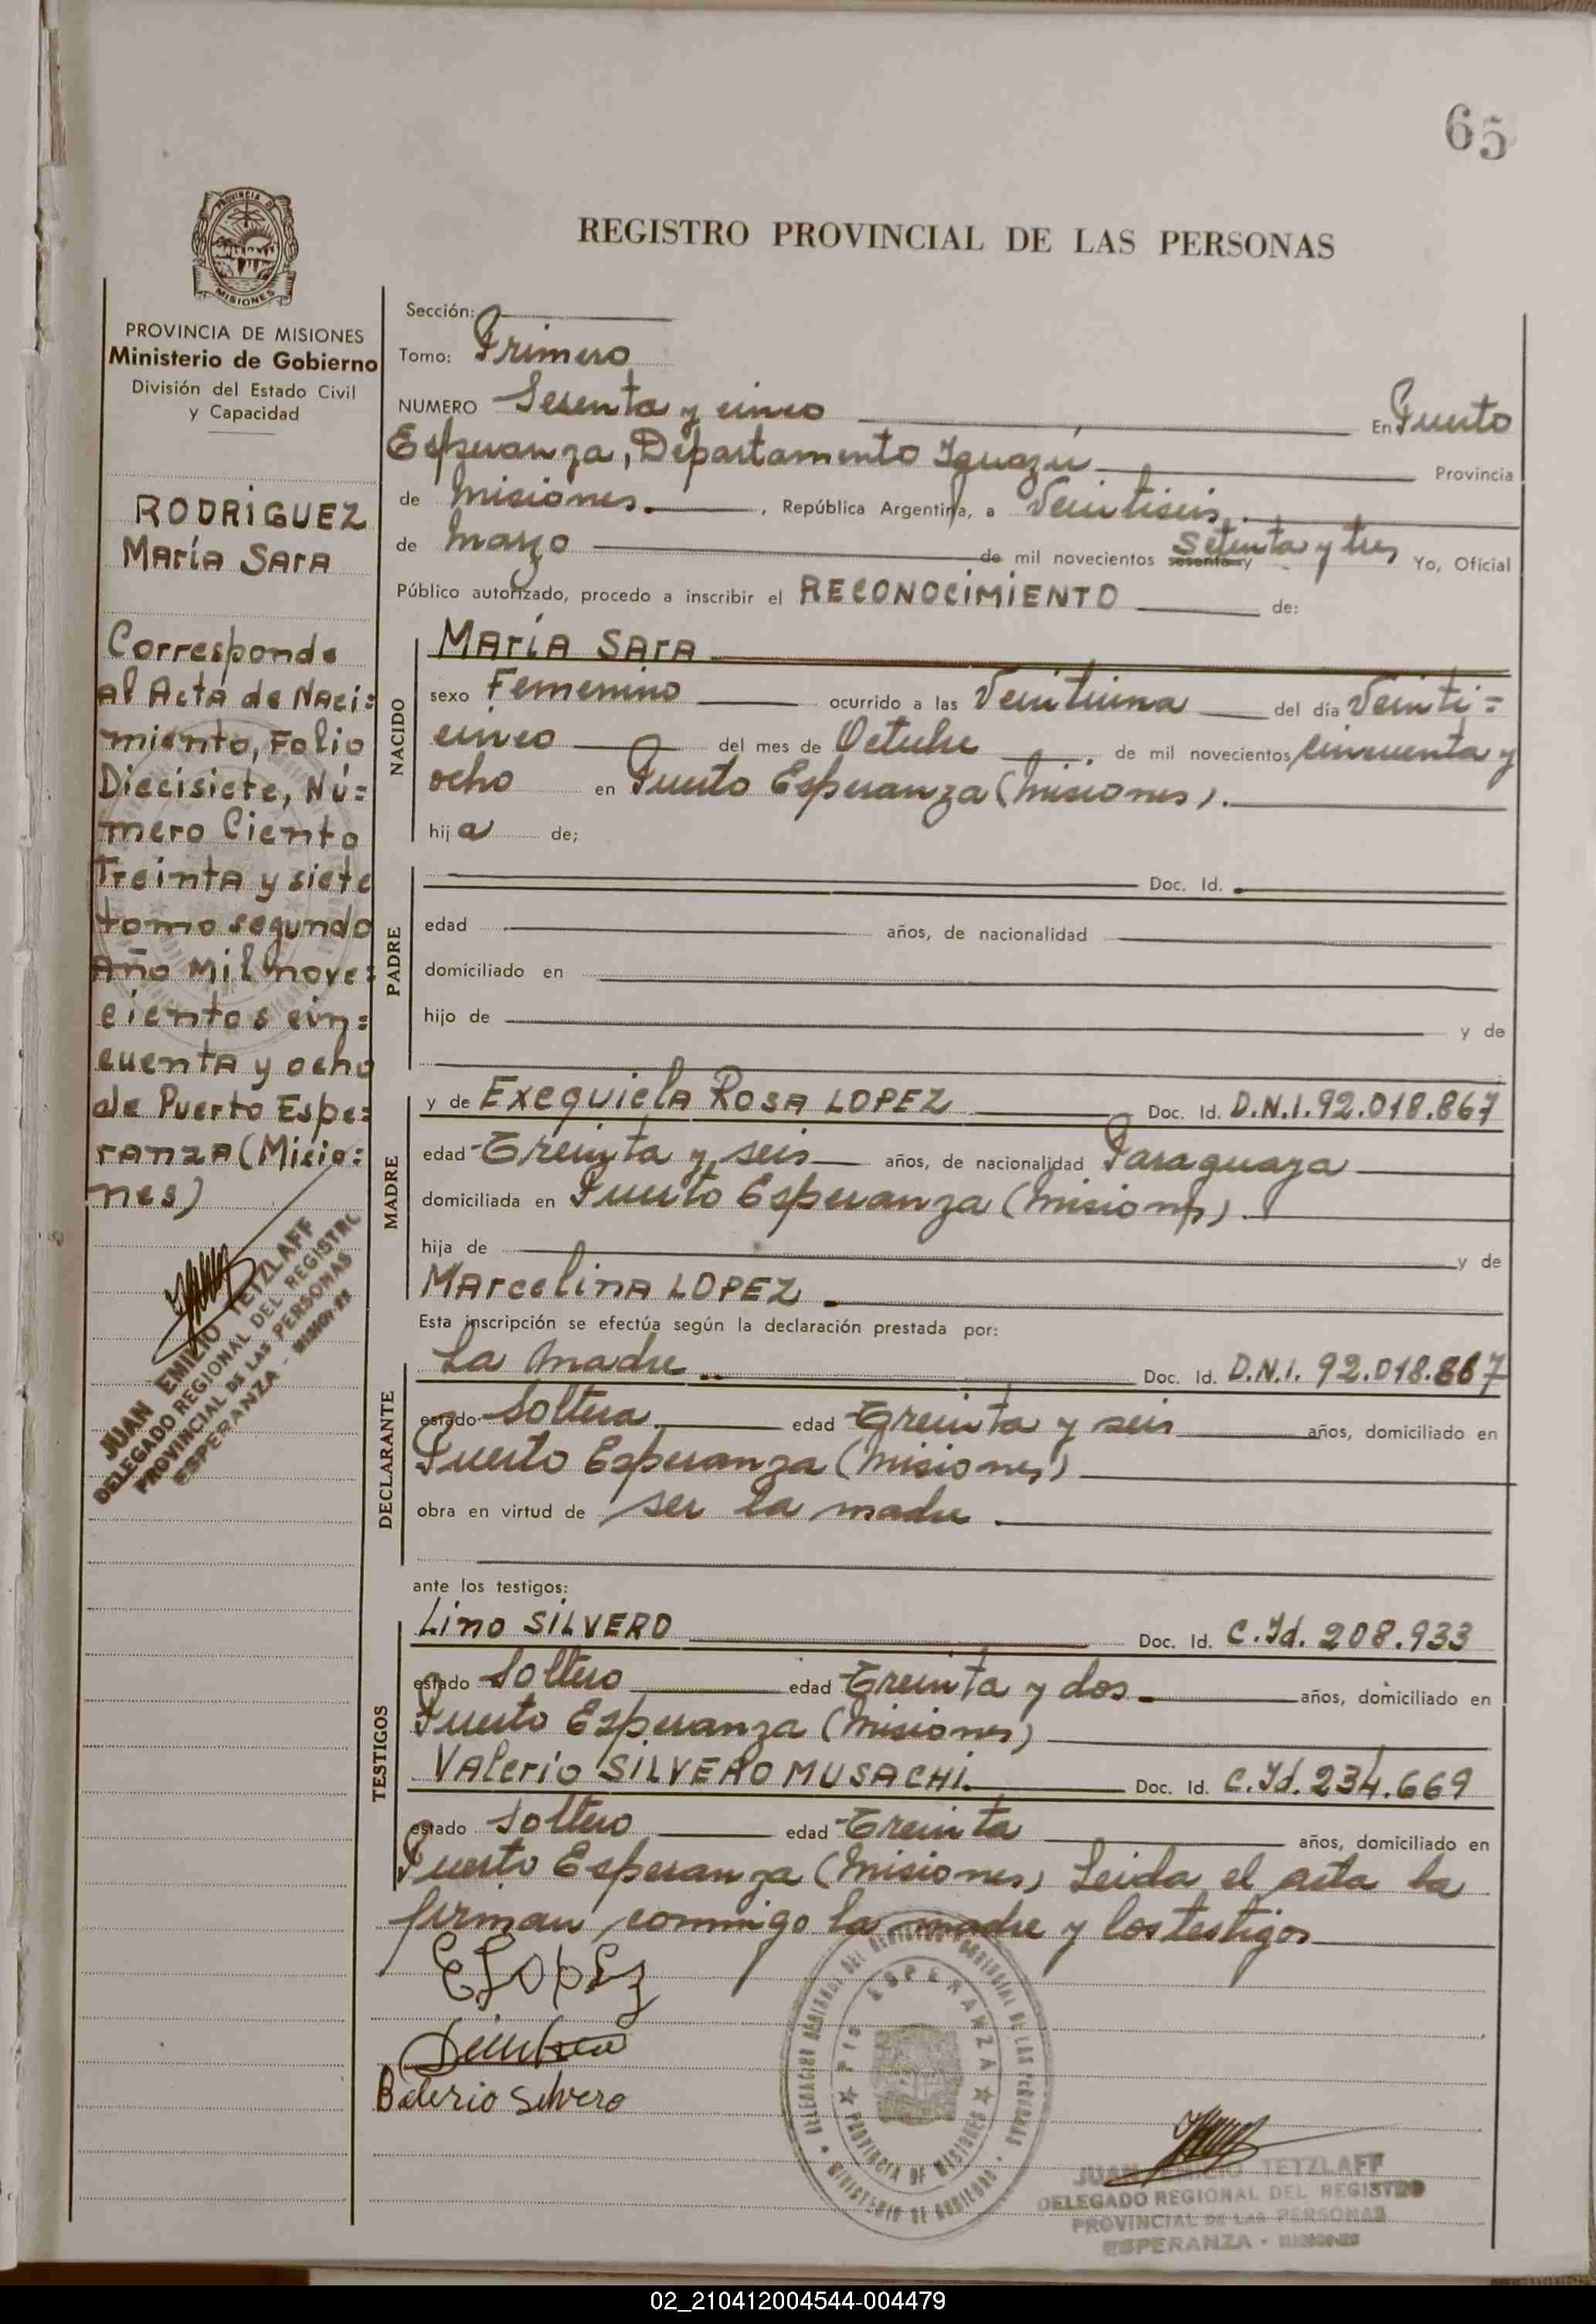 65
PROVINCIA DE
MISIONES
REGISTRO PROVINCIAL DE LAS PERSONAS
PROVINCIA DE MISIONES
Ministerio de Gobierno
División del Estado Civil
y Capacidad
RODRIGUEZ
María Sara
Corresponde
al Acta de Naci=
miento, Folio
Diecisiete, Nú=
mero Ciento
Treinta y siete
tomo segundo
Año Mil nove=
cientos cin=
cuenta y ocho
de Puerto Espe=
ranza (Misio=
nes)
JUAN EMILIO TETZLAFF
DELEGADO REGIONAL DEL REGISTRO
PROVINCIAL DE LAS PERSONAS
ESPERANZA - MISIONES
Sección:
Tomo: Primero
NUMERO Sesenta y cinco En Puerto
Esperanza, Departamento Iguazú Provincia
de Misiones. , República Argentina, a Veintiseis
de Marzo de mil novecientos sesenta y Setenta y tres Yo, Oficial
Público autorizado, procedo a inscribir el RECONOCIMIENTO de:
NACIDO
María Sara
sexo Femenino ocurrido a las Veintiuna del día Veinti=
cinco del mes de Octubre , de mil novecientos Cincuenta y
ocho en Puerto Esperanza (Misiones).
hija de;
PADRE
Doc. Id.
edad años, de nacionalidad
domiciliado en
hijo de y de
MADRE
y de Exequiela Rosa LOPEZ Doc. Id. D.N.I. 92.018.867
edad Treinta y seis años, de nacionalidad Paraguaya
domiciliada en Puerto Esperanza (Misiones).
hija de y de
Marcelina LOPEZ.
Esta inscripción se efectúa según la declaración prestada por:
DECLARANTE
La Madre Doc. Id. D.N.I. 92.018.867
estado Soltera edad Treinta y seis años, domiciliado en
Puerto Esperanza (Misiones)
obra en virtud de ser la madre.
ante los testigos:
TESTIGOS
Lino SILVERO Doc. Id. C.Id. 208.933
estado Soltero edad Treinta y dos años, domiciliado en
Puerto Esperanza (Misiones)
Valerio SILVERO MUSACHI. Doc. Id. C.Id. 234.669
estado Soltero edad Treinta años, domiciliado en
Puerto Esperanza (Misiones) Leida el acta la
firman conmigo la madre y los testigos
ELopEz
Balerio Silvero
DELEGACION REGIONAL DEL REGISTRO PROVINCIAL DE LAS PERSONAS
MINISTERIO DE GOBIERNO
PTO ESPERANZA
PROVINCIA DE MISIONES
JUAN EMILIO TETZLAFF
DELEGADO REGIONAL DEL REGISTRO
PROVINCIAL DE LAS PERSONAS
ESPERANZA - MISIONES
02_210412004544-004479